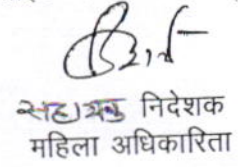 सहायक निदेशक
महिला अधिकारिता